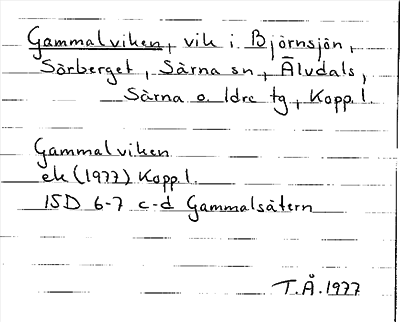 Gammalviken, vik i Björnsjön,
Särberget, Särna sn, Älvdals,
Särna o. Idre tg, Kopp. l.
Gammalviken
ek (1977) Kopp. l.
15D 6-7 c-d Gammalsätern
T.Å. 1977